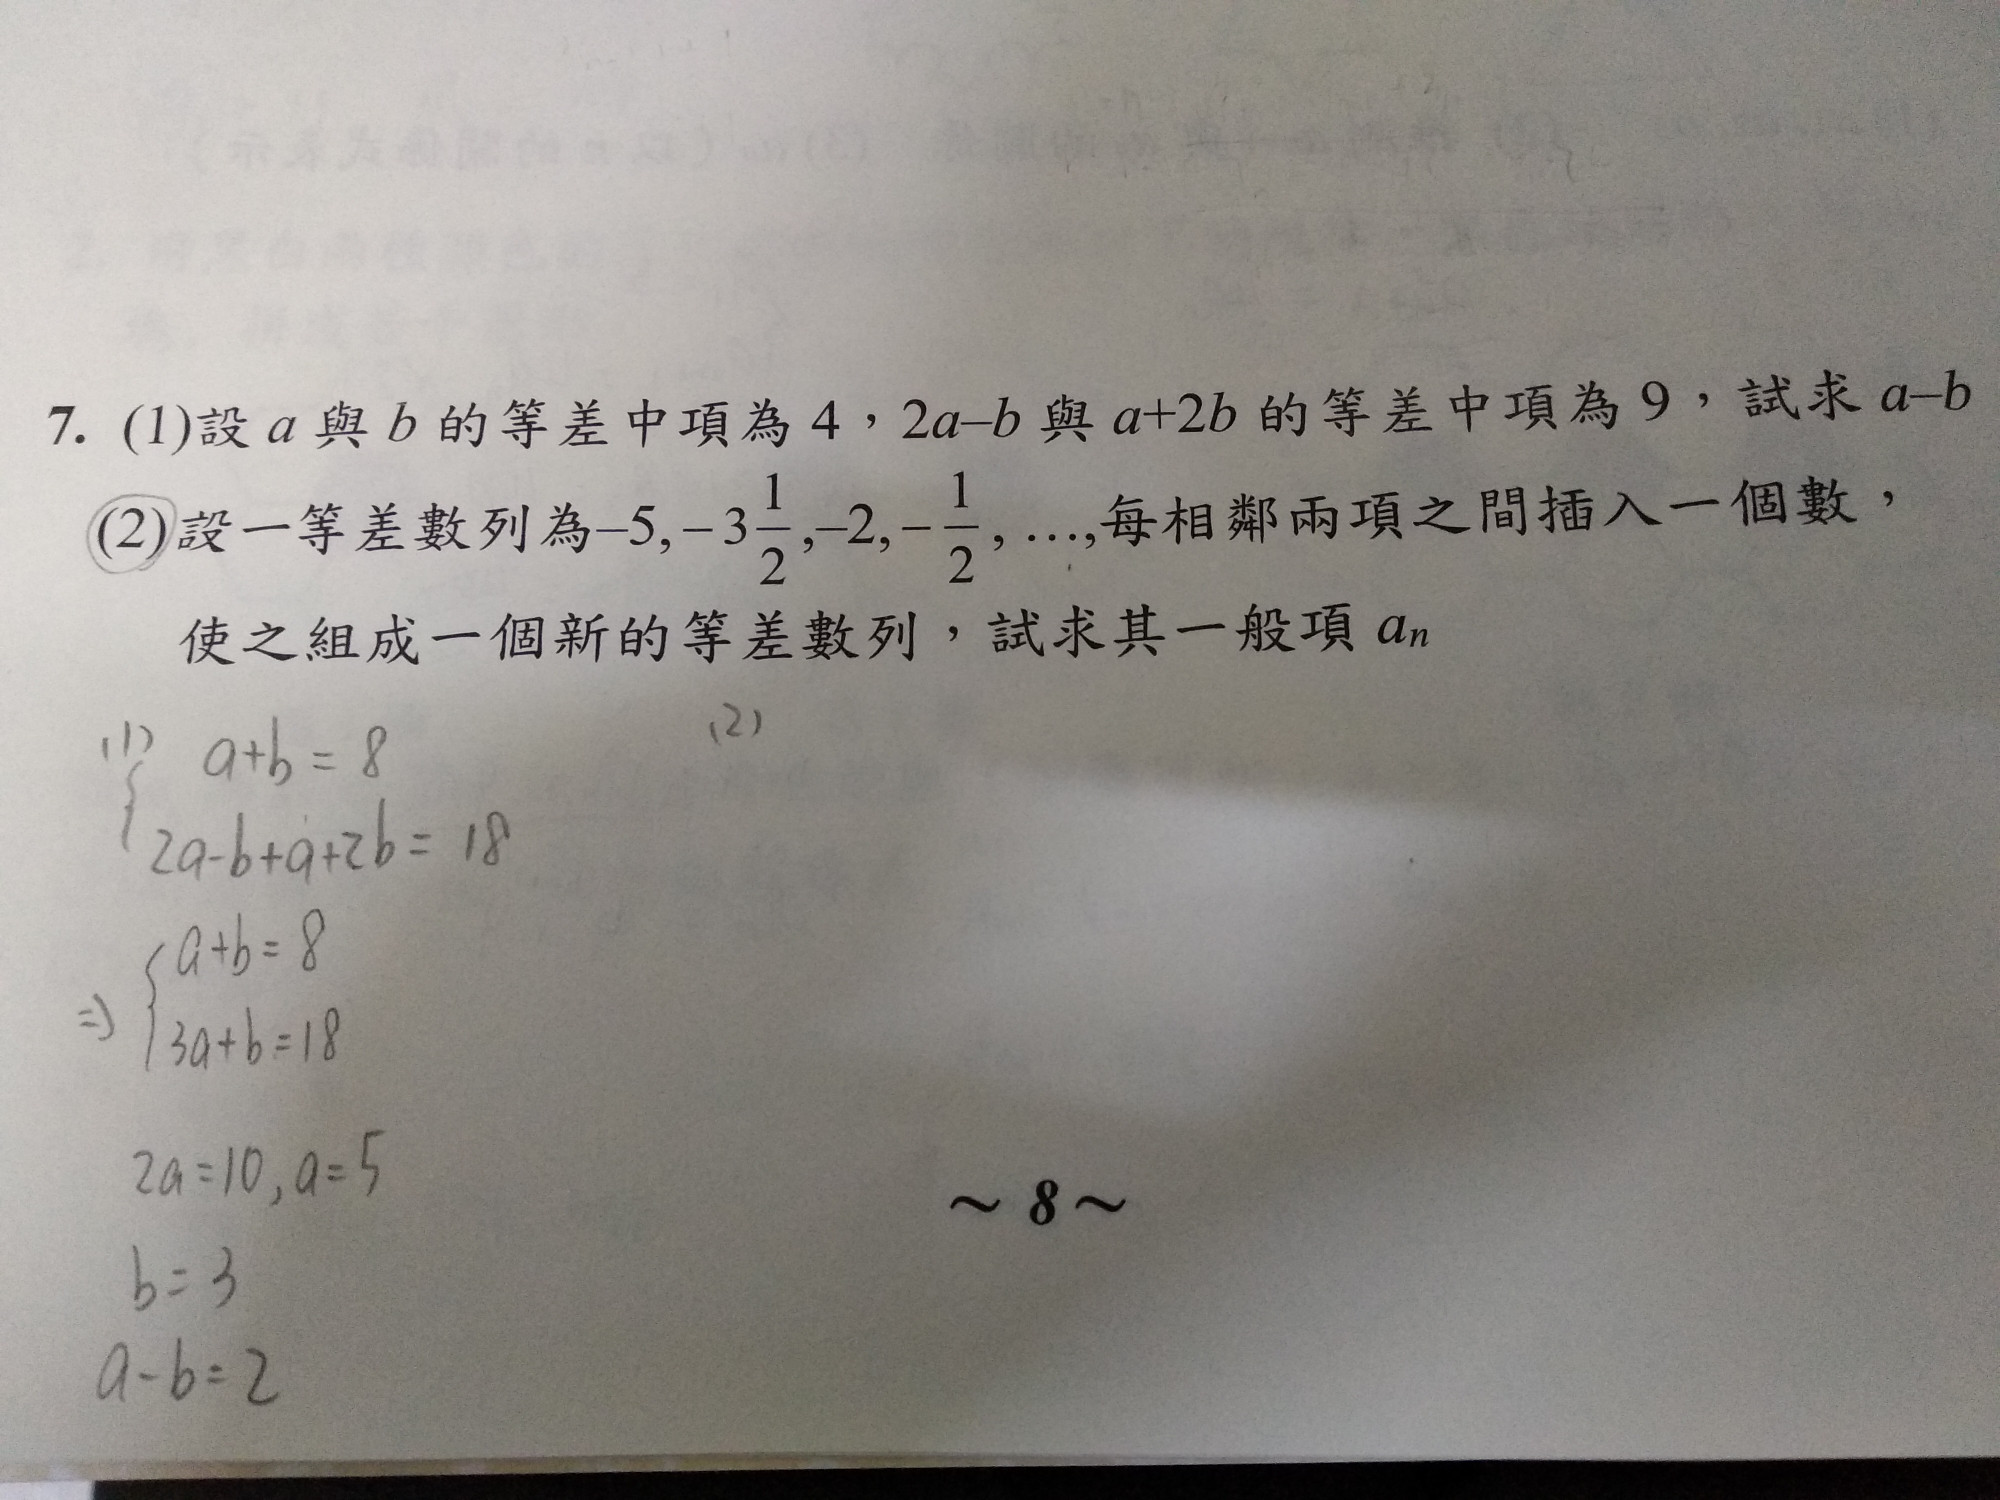 7. (1)設 a 與 b 的等差中項為 4，2a–b 與 a+2b 的等差中項為 9，試求 a–b
(2)設一等差數列為–5, –3 1/2 ,–2, – 1/2 , …,每相鄰兩項之間插入一個數，
使之組成一個新的等差數列，試求其一般項 an
(1) a+b=8
2a-b+a+2b=18
a+b=8
⇒ 3a+b=18
2a=10, a=5
b=3
a-b=2
(2)
～ 8 ～